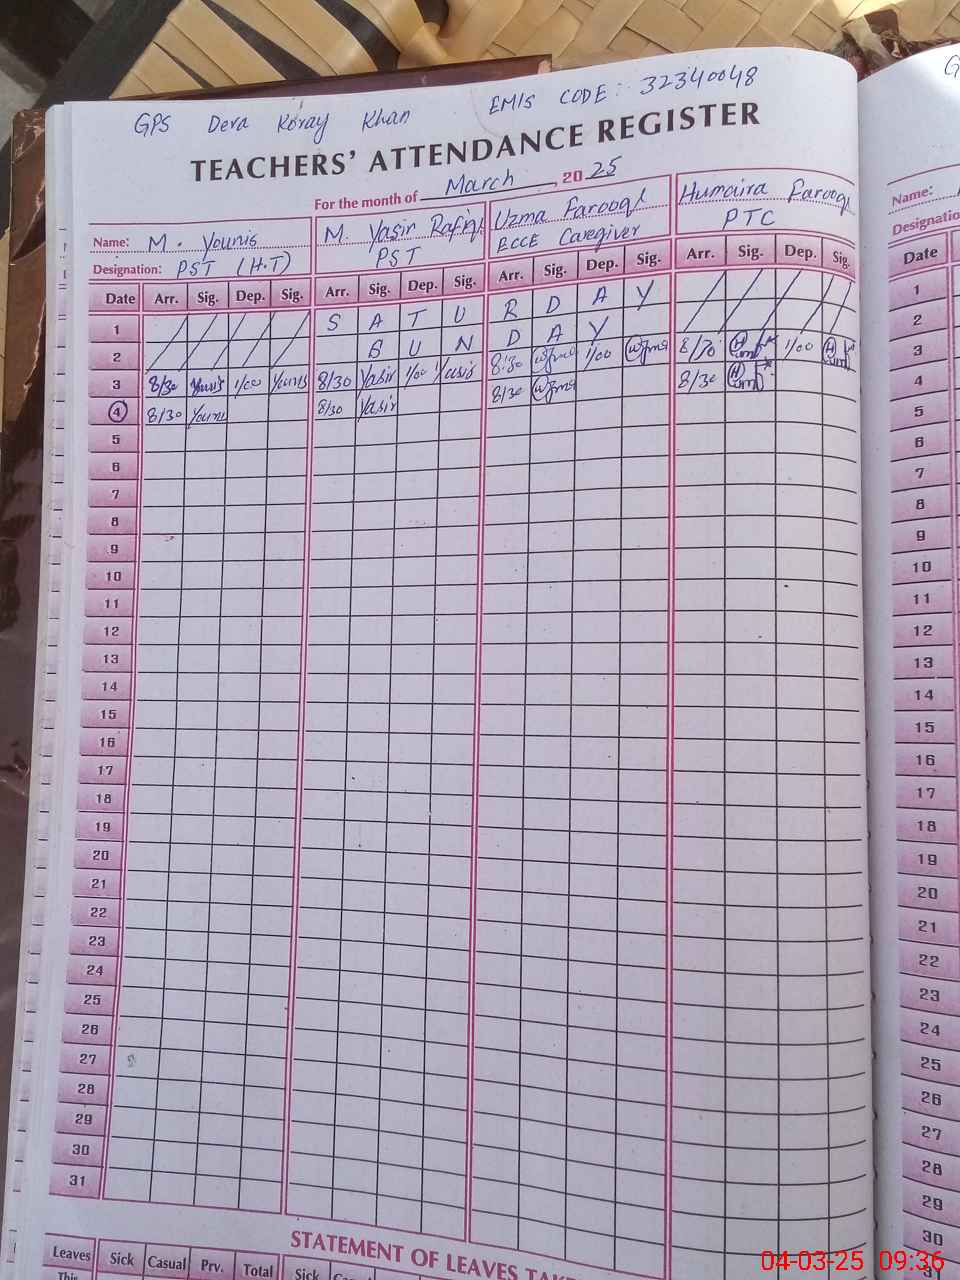 GPS Dera Koray Khan EMIS CODE: 32340048
TEACHERS' ATTENDANCE REGISTER
For the month of March, 20 25
Name: M. Younis M. Yasir Rafiq Uzma Farooq Humaira Farooq
Designation: PST (H.T) PST ECCE Caregiver PTC
Date Arr. Sig. Dep. Sig. Arr. Sig. Dep. Sig. Arr. Sig. Dep. Sig. Arr. Sig. Dep. Sig.
1 S A T U R D A Y
2 S U N D A Y
3 8/30 Younis 1/00 Younis 8/30 Yasir 1/00 Yasir 8:30 Uzma 1/00 Uzma 1/00
4 8/30 Younis 8/30 Yasir 8/30 Uzma 8/30
5
6
7
8
9
10
11
12
13
14
15
16
17
18
19
20
21
22
23
24
25
26
27
28
29
30
31
STATEMENT OF LEAVES
Leaves Sick Casual Prv. Total Sick
This
G
Name:
Date
1
2
3
4
5
6
7
8
9
10
11
12
13
14
15
16
17
18
19
20
21
22
23
24
25
26
27
28
29
30
31
04-03-25 09:36